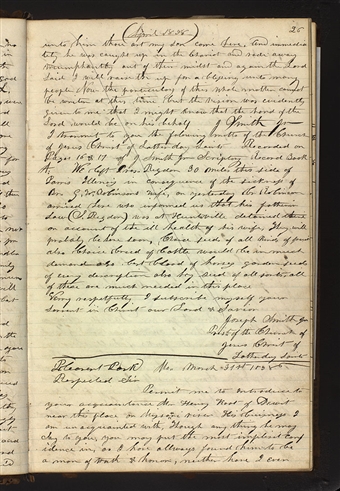 April 1838
25
unto him there as my son come here. And immedia
tely he was caught up in the Chariot and rode away
triumphantly out of their midst and again the Lord
Said I will raise thee up for a blessing unto many
people. Now the particulars of this whole matter cannot
be written at this time but the vision was evidently
given to me that I might know that the hand of the
Lord would be on his behalf J Smith Jr
I transmit to you the following motto of the Church
of Jesus Christ of Latterday Saints Recorded on
Pages 16 & 17 of J Smith Jr Scriptory Record Book
A. We left Pres. Rigdon 30 miles this side of
Paris Illinois in consequence of the sickness of
Bro. G. W. Robinson's wife, on yesterday Br. Robinson
arrived here who informed us that his father in
Law (S. Rigdon) was at Huntsville detained there
on account of the ill health of his wife, They will
probably be here soon, Choice seeds of all kinds of fruit
also Choice breed of Cattle would be in much
demand also best blood of horses garden seeds
of every description also hay seed of all sorts, all
of these are much needed in this place
Very respectfully I subscribe myself your
servant in Christ our Lord & Savior
Joseph Smith Jr
Prest of the Church of
Jesus Christ of
Latterday Saints
Pleasant Park Mo March 31st 1838
Respected Sir
Permit me to introduce to
your acquaintance Mr Henry Root of Dewit
near this place on Missouri river His business I
am unacquainted with, Though any thing he may
say to you, you may put the most implicit Conf
idence in, as I have always found him to be
a man of truth & honor, neither have I ever